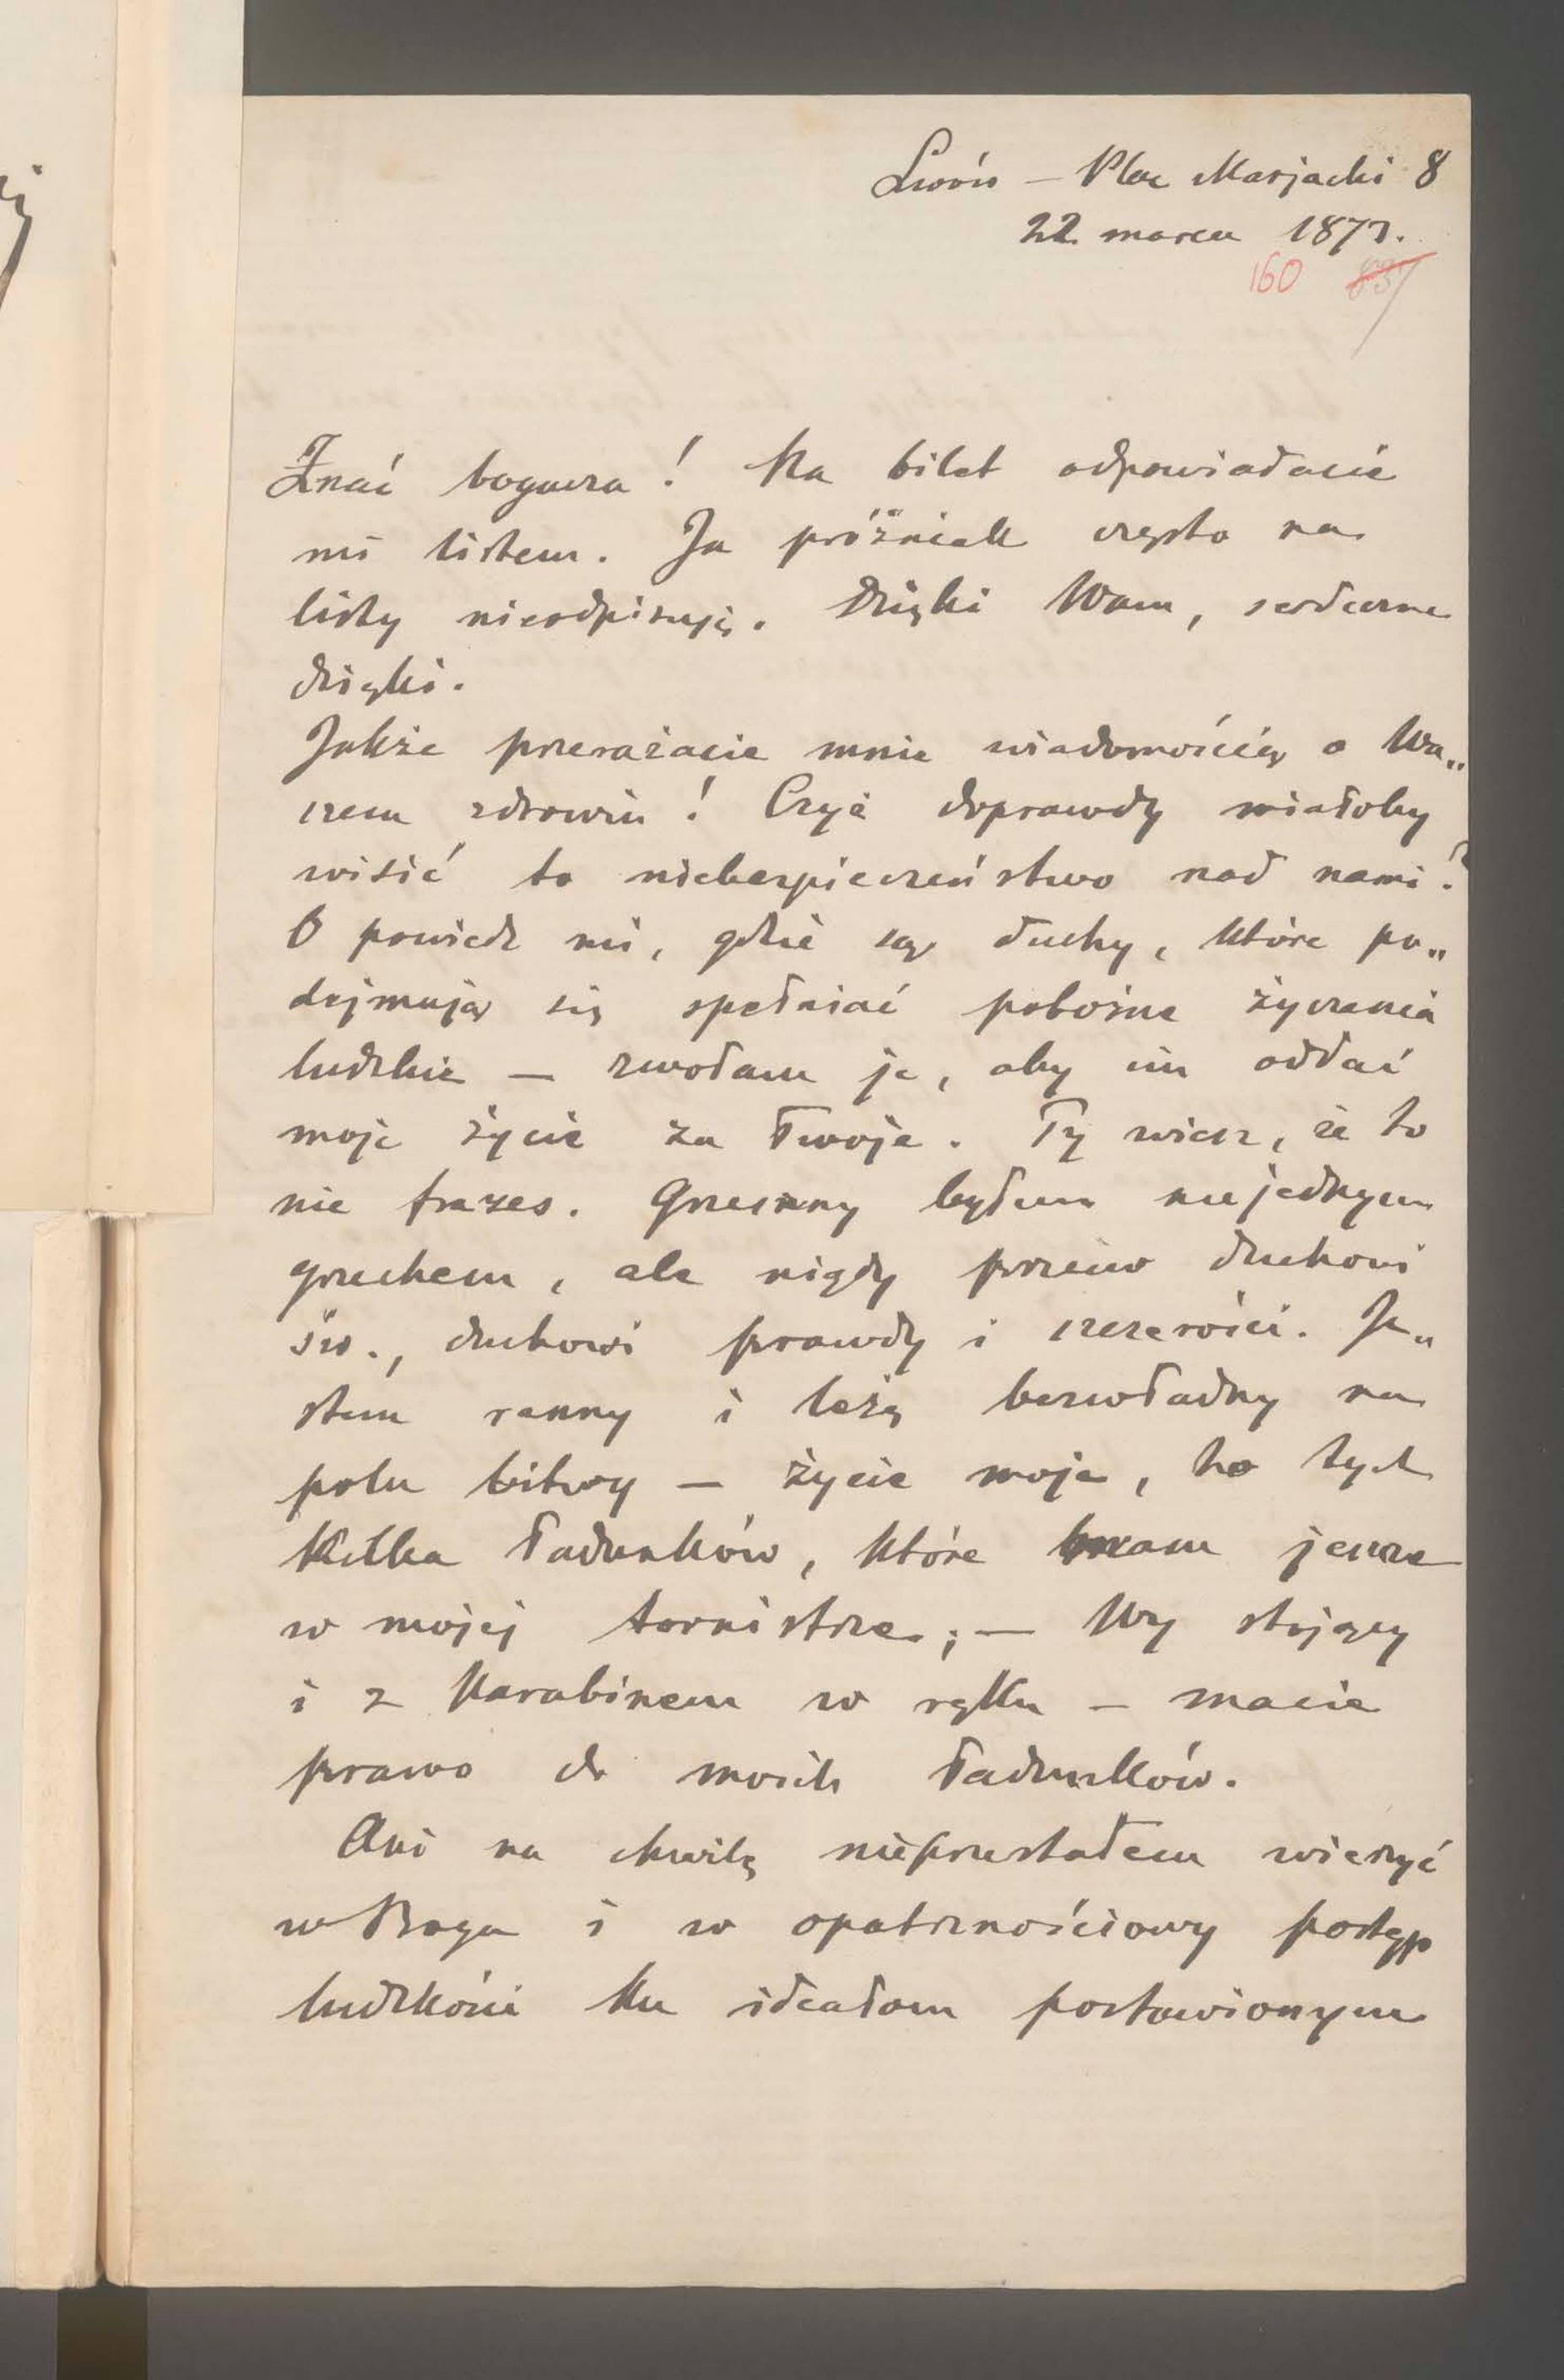 Lwów — Plac Marjacki 8
22 marca 1873.
160 837
Znać bogacza! Na bilet odpowiadacie
mi listem. Ja próżniak często na
listy nieodpisuję. Dzięki Wam, serdeczne
dzięki.
Jakże przerażacie mnie wiadomością o Wa„
szem zdrowiu! Czyż doprawdy miałoby
wisić to niebezpieczeństwo nad nami?
O powiedz mi, gdzie są duchy, które po„
dejmują się spełniać pobożne życzenia
ludzkie — zwołam je, aby im oddać
moje życie za Twoje. Ty wiesz, że to
nie frazes. Grzeszny byłem niejednym
grzechem, ale nigdy przeciw duchowi
św., duchowi prawdy i szczerości. Je„
stem ranny i leżę bezwładny na
polu bitwy — życie moje, to tych
kilka ładunków, które mam jeszcze
w mojej tornistrze; — Wy stojący
i z karabinem w ręku — macie
prawo do moich ładunków.
Ani na chwilę nieprzestałem wierzyć
w Boga i w opatrznościowy postęp
ludzkości ku ideałom postawionym